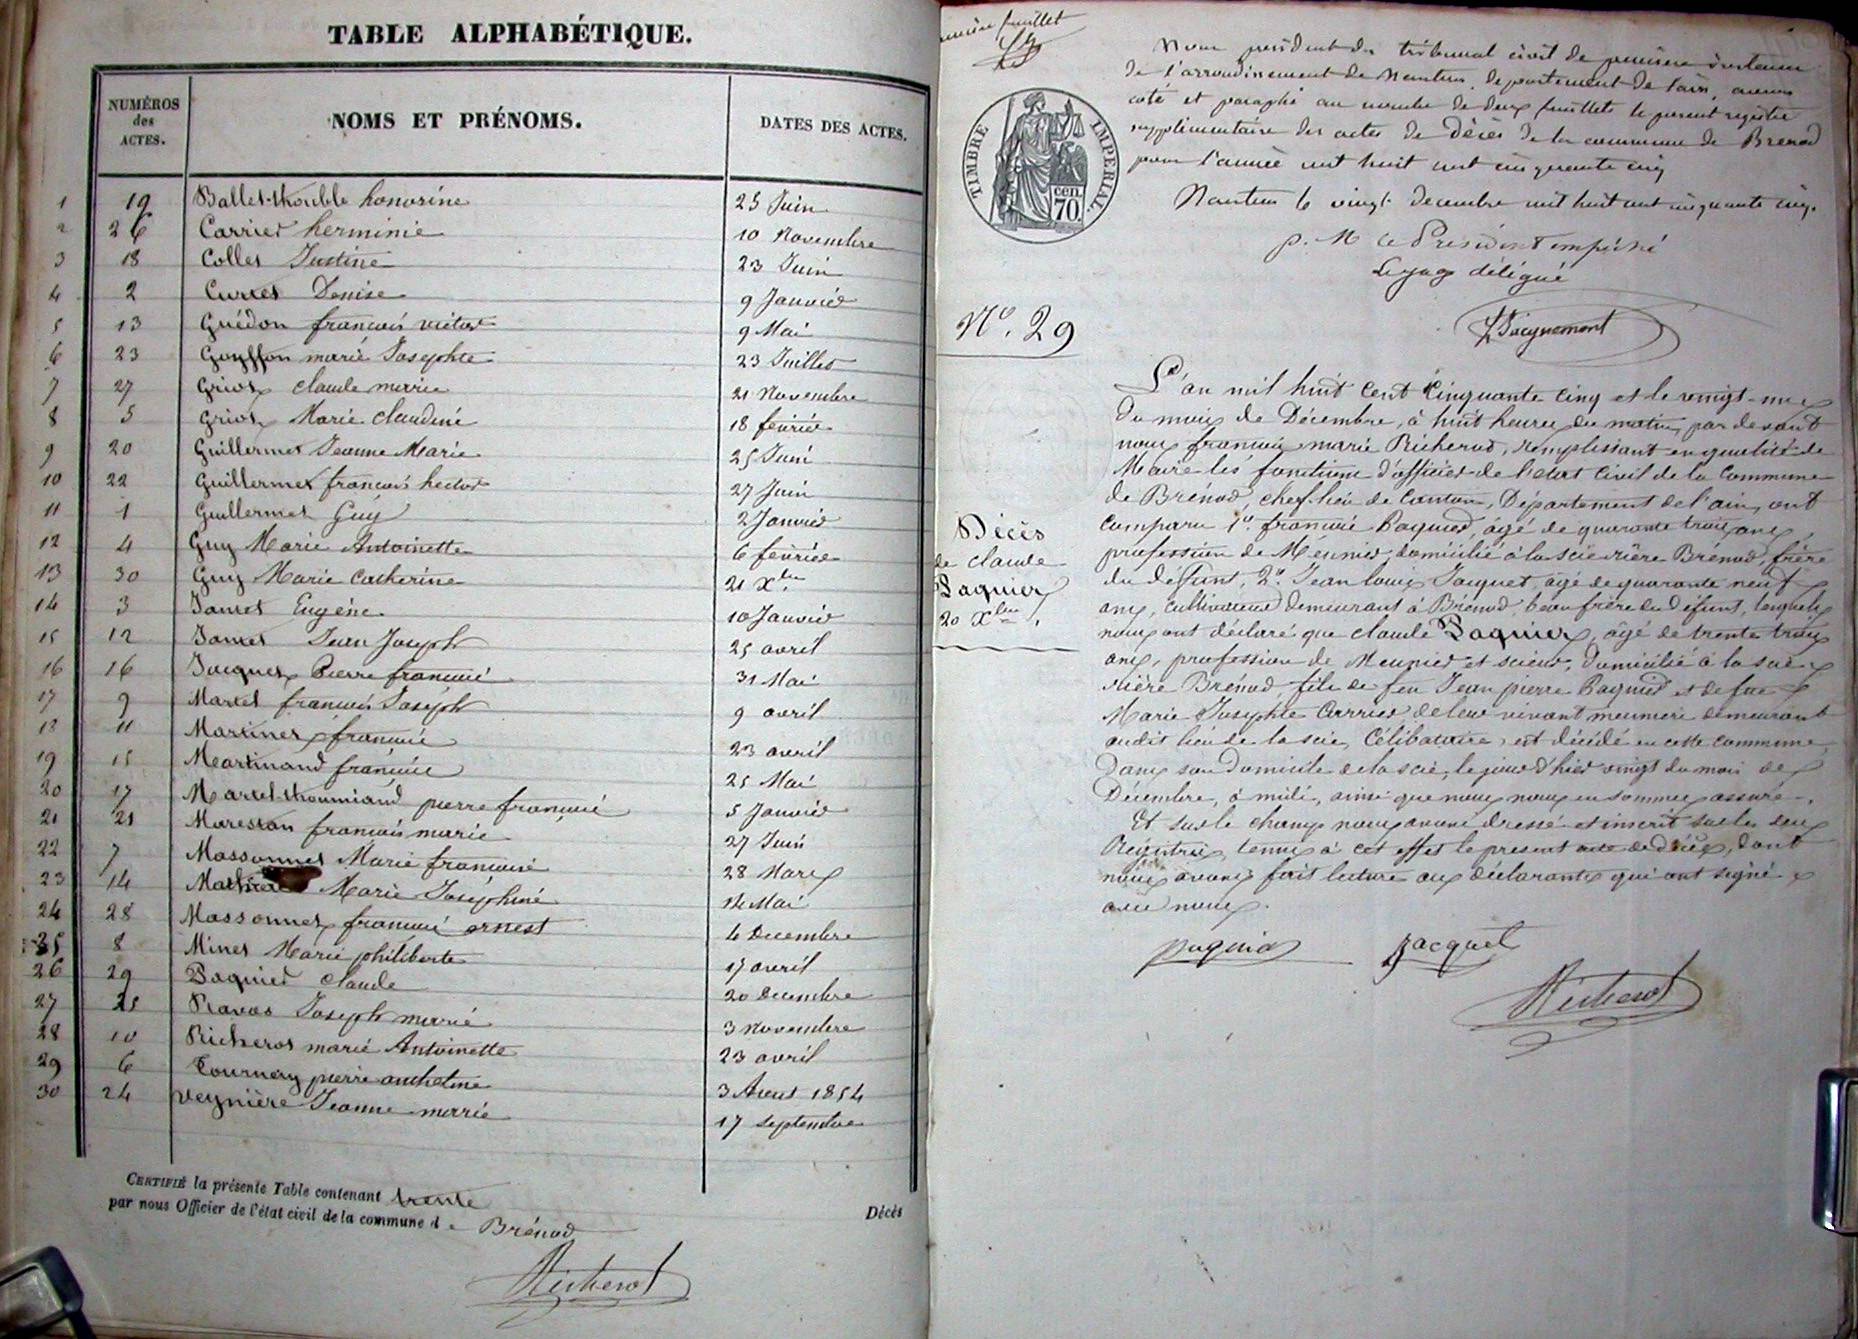 TABLE ALPHABÉTIQUE.
NUMÉROS des ACTES. NOMS ET PRÉNOMS. DATES DES ACTES.
1 19 Ballet-thouble honorine 25 Juin
2 26 Carrier herminie 10 Novembre
3 18 Collet Justine 23 Juin
4 2 Curtet Denise 9 Janvier
5 13 Guédon françois victor 9 Mai
6 23 Goyffon marie Josephte 23 Juillet
7 27 Griot claude marie 21 Novembre
8 5 Griot Marie claudine 18 février
9 20 Guillermet Jeanne Marie 25 Juin
10 22 Guillermet françois hector 27 Juin
11 1 Guillermet Guy 2 Janvier
12 4 Guy Marie Antoinette 6 février
13 30 Guy Marie Catherine 21 Xbre
14 3 Jantet Eugénie 10 Janvier
15 12 Jantet Jean Joseph 25 avril
16 16 Jacquet Pierre françois 31 Mai
17 9 Martel françois Joseph 9 avril
18 11 Martinet françois 23 avril
19 15 Martinand françois 25 Mai
20 17 Martel-thoumiand pierre françois 5 Janvier
21 21 Marestan françois marie 27 Juin
22 7 Massonnet Marie françoise 28 Mars
23 14 Marie Joséphine 14 Mai
24 28 Massonnet françois ernest 4 Decembre
25 8 Minet Marie philiberte 17 avril
26 29 Paquier claude 20 Decembre
27 25 Ravat Joseph marie 3 Novembre
28 10 Richerot marie Antoinette 23 avril
29 6 Tournery pierre anthelme 3 Aout 1854
30 24 Veynière Jeanne marie 17 septembre
CERTIFIÉ la présente Table contenant trente
par nous Officier de l'état civil de la commune de Brénod
Décès
Richerot
feuillet
Nous président du tribunal civil de première instance
de l'arrondissement de Nantua, departement de l'ain, avons
coté et paraphé au nombre de deux feuillets le present registre
supplémentaire des actes de Décès de la commune de Brenod
pour l'année mil huit cent cinquante cinq
Nantua le vingt decembre mil huit cent cinquante cinq.
p. M le Président empêché
Le juge délégué
Jacquemont
TIMBRE IMPERIAL.
70. cen.
N° 29
Décès
de claude
Paquier
20 Xbre
L'an mil huit cent cinquante cinq et le vingt-un
du mois de Décembre, à huit heures du matin, par devant
nous françois marie Richerod, remplissant en qualité de
Maire les fonctions d'officier de l'etat Civil de la Commune
de Brénod, chef-lieu de Canton, Département de l'ain, ont
comparu 1° françois Paquier, agé de quarante trois ans,
profession de Meunier, domicilié à la scie rière Brénod, frère
du défunt, 2° Jean louis Jacquet, agé de quarante neuf
ans, cultivateur demeurant à Brénod, beau frère du défunt, lesquels
nous ont déclaré que claude Paquier, âgé de trente trois
ans, profession de Meunier et scieur, domicilié à la scie
rière Brénod, fils de feu Jean pierre Paquier et de feue
Marie Josephte Carrier de leur vivant meuniers demeurant
audit lieu de la scie, Célibataire, est décédé en cette commune,
dans son domicile de la scie, le jour d'hier vingt du mois de
Décembre, à midi, ainsi que nous nous en sommes assuré.
Et sur le champ nous avons dressé et inscrit sur les deux
Registres, tenus à cet effet le present acte de décès, dont
nous avons fait lecture aux déclarants qui ont signé
avec nous.
paquier Jacquet
Richerot